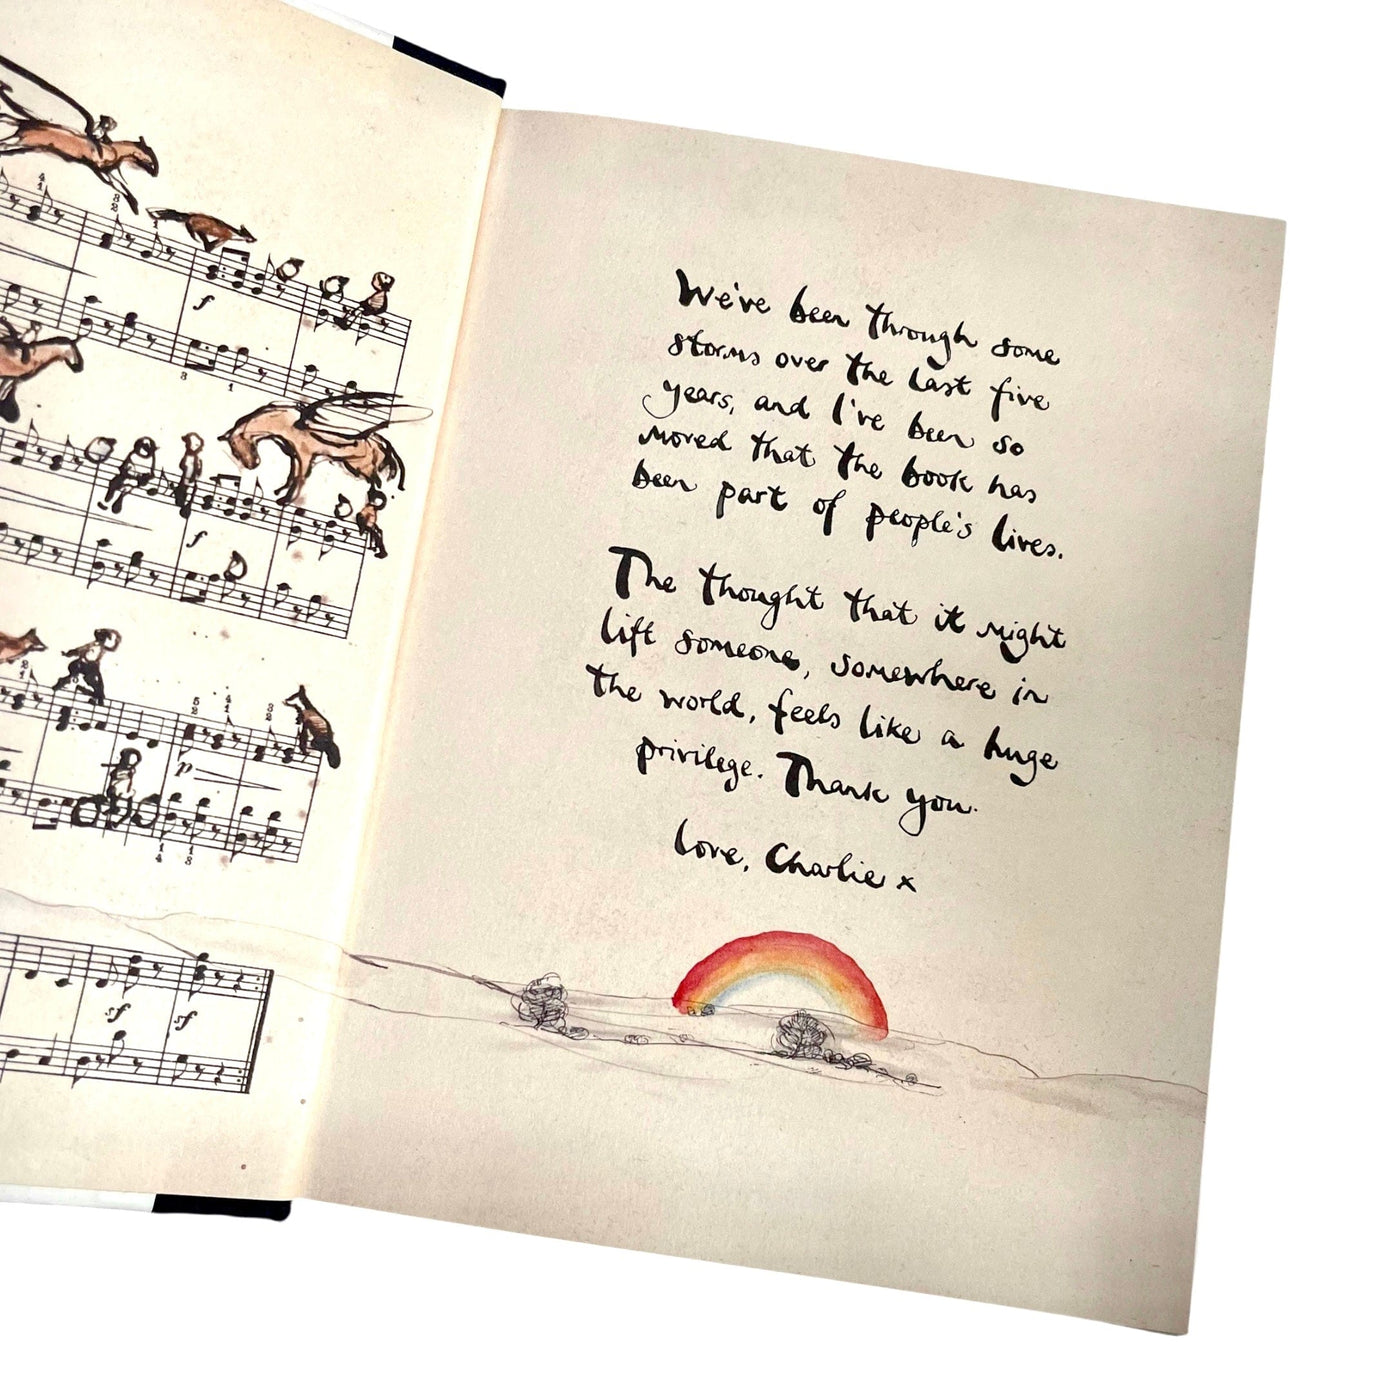 We've been through some
storms over the last five
years, and I've been so
moved that the book has
been part of people's lives.
The thought that it might
lift someone, somewhere in
the world, feels like a huge
privilege. Thank you.
Love, Charlie x